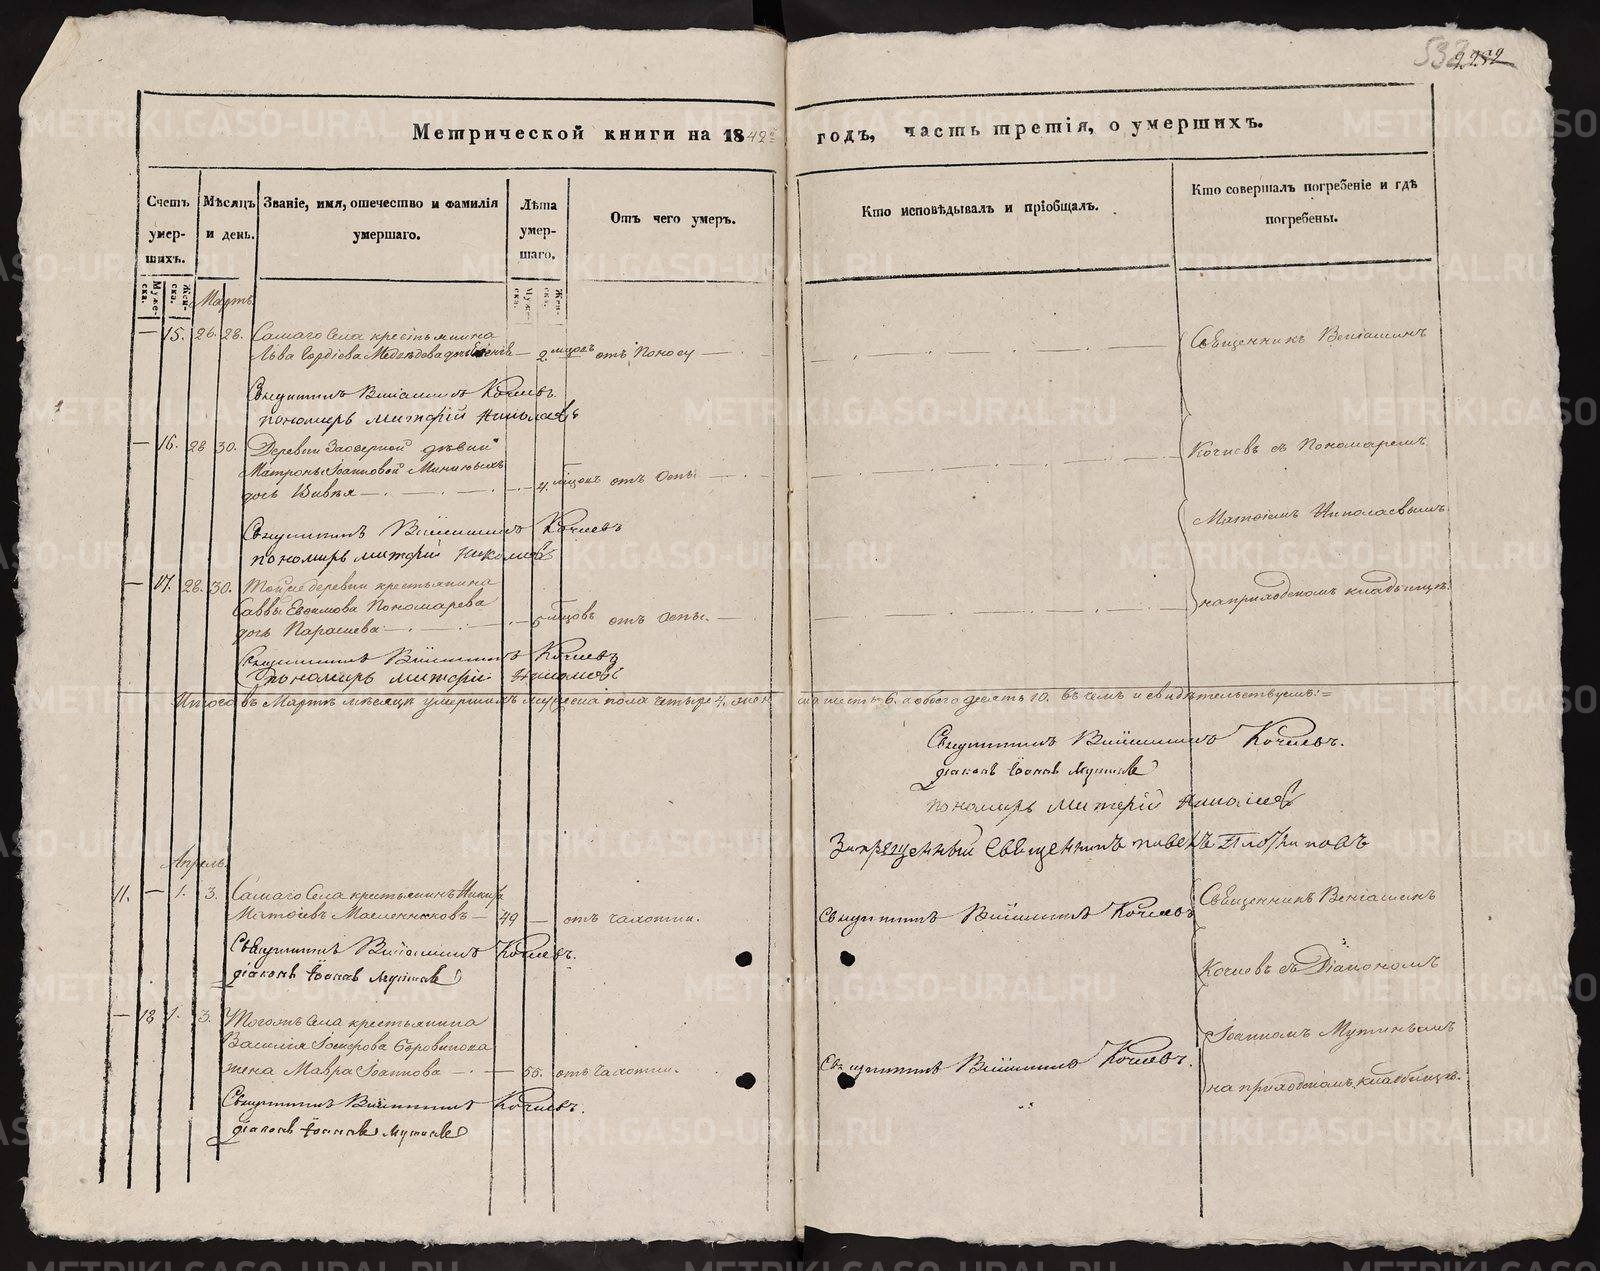 2252
Метрической книги на 1842 годъ, часть третія, о умершихъ.
Счетъ умер- шихъ.
Мѣсяцъ и день.
Званіе, имя, отечество и фамилія умершаго.
Лѣта умер- шаго.
Отъ чего умеръ.
Кто исповѣдывалъ и пріобщалъ.
Кто совершалъ погребеніе и гдѣ погребены.
Муже- ска.
Жен- ска.
Муже- ска.
Жен- ска.
Мартъ
15. 26. 28. Самаго Села крестьянина
Льва 2 отъ Поносу
Священникъ Веніаминъ
Священникъ Веніаминъ Кочневъ.
пономарь Матфій Николаевъ
16. 28 30. Деревни Заозерной дѣвки
Матроны Іоанновой
дочь 4. отъ Оспы
Кочневъ съ Пономаремъ
Священникъ Веніаминъ Кочневъ
пономарь Матфій Николаевъ
Матфіемъ Николаевымъ
17. 28. 30. Тойже деревни крестьянина
Саввы Евфимова Пономарева
дочь 5 отъ Оспы.
на приходскомъ кладбищѣ.
Священникъ Веніаминъ Кочневъ
Пономарь Матфій Николаевъ
Итого въ Мартѣ мѣсяцѣ умершихъ мужеска пола четыре 4. женска шесть 6. а обоего десять 10. въ чемъ и свидѣтельствуемъ:=
Священникъ Веніаминъ Кочневъ.
діаконъ Іоаннъ
пономарь Матфій Николаевъ
Запрещенный Священникъ Павелъ
Апрѣль
11. — 1. 3. Самаго Села крестьянинъ
Матфіевъ Масленниковъ — 49 — отъ чахотки.
Священникъ Веніаминъ Кочневъ
Священникъ Веніаминъ
Священникъ Веніаминъ Кочневъ.
діаконъ Іоаннъ
Кочневъ съ Діакономъ
— 18 1. 3. Тогожъ Села крестьянина
Василія
жена Мавра Іоаннова — 55. отъ чахотки.
Священникъ Веніаминъ Кочневъ.
Іоанномъ
на приходскомъ кладбищѣ.
Священникъ Веніаминъ Кочневъ.
діаконъ Іоаннъ
METRIKI.GASO-URAL.RU